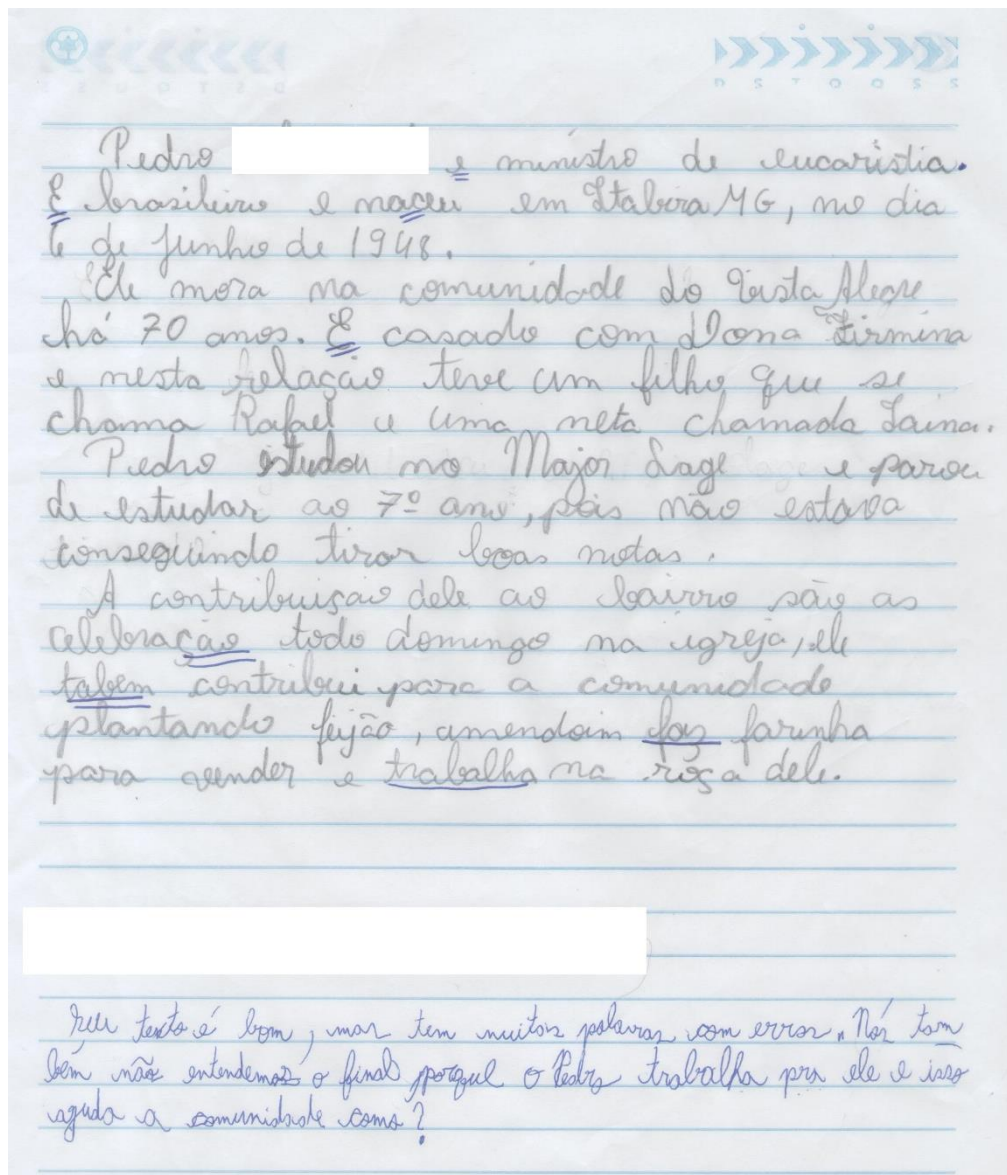 Pedro e ministro de eucaristia.
E brasileiro e naceu em Itabira MG, no dia
6 de Junho de 1948.
Ele mora na comunidade do Vista Alegre
há 70 anos. E casado com Dona Firmina
e nesta relação teve um filho que se
chama Rafael e uma neta chamada Taina.
Pedro estudou no Major Lage e parou
de estudar ao 7º ano, pois não estava
conseguindo tirar boas notas.
A contribuiçao dele ao bairro são as
celebração todo domingo na igreja, ele
tabem contribui para a comunidade
plantando feijão, amendoim faz farinha
para vender e trabalha na roça dele.
Seu texto é bom, mas tem muitas palavras com erros. Nós tam
bém não entendemos o final porque o Pedro trabalha pra ele e isso
ajuda a comunidade como?